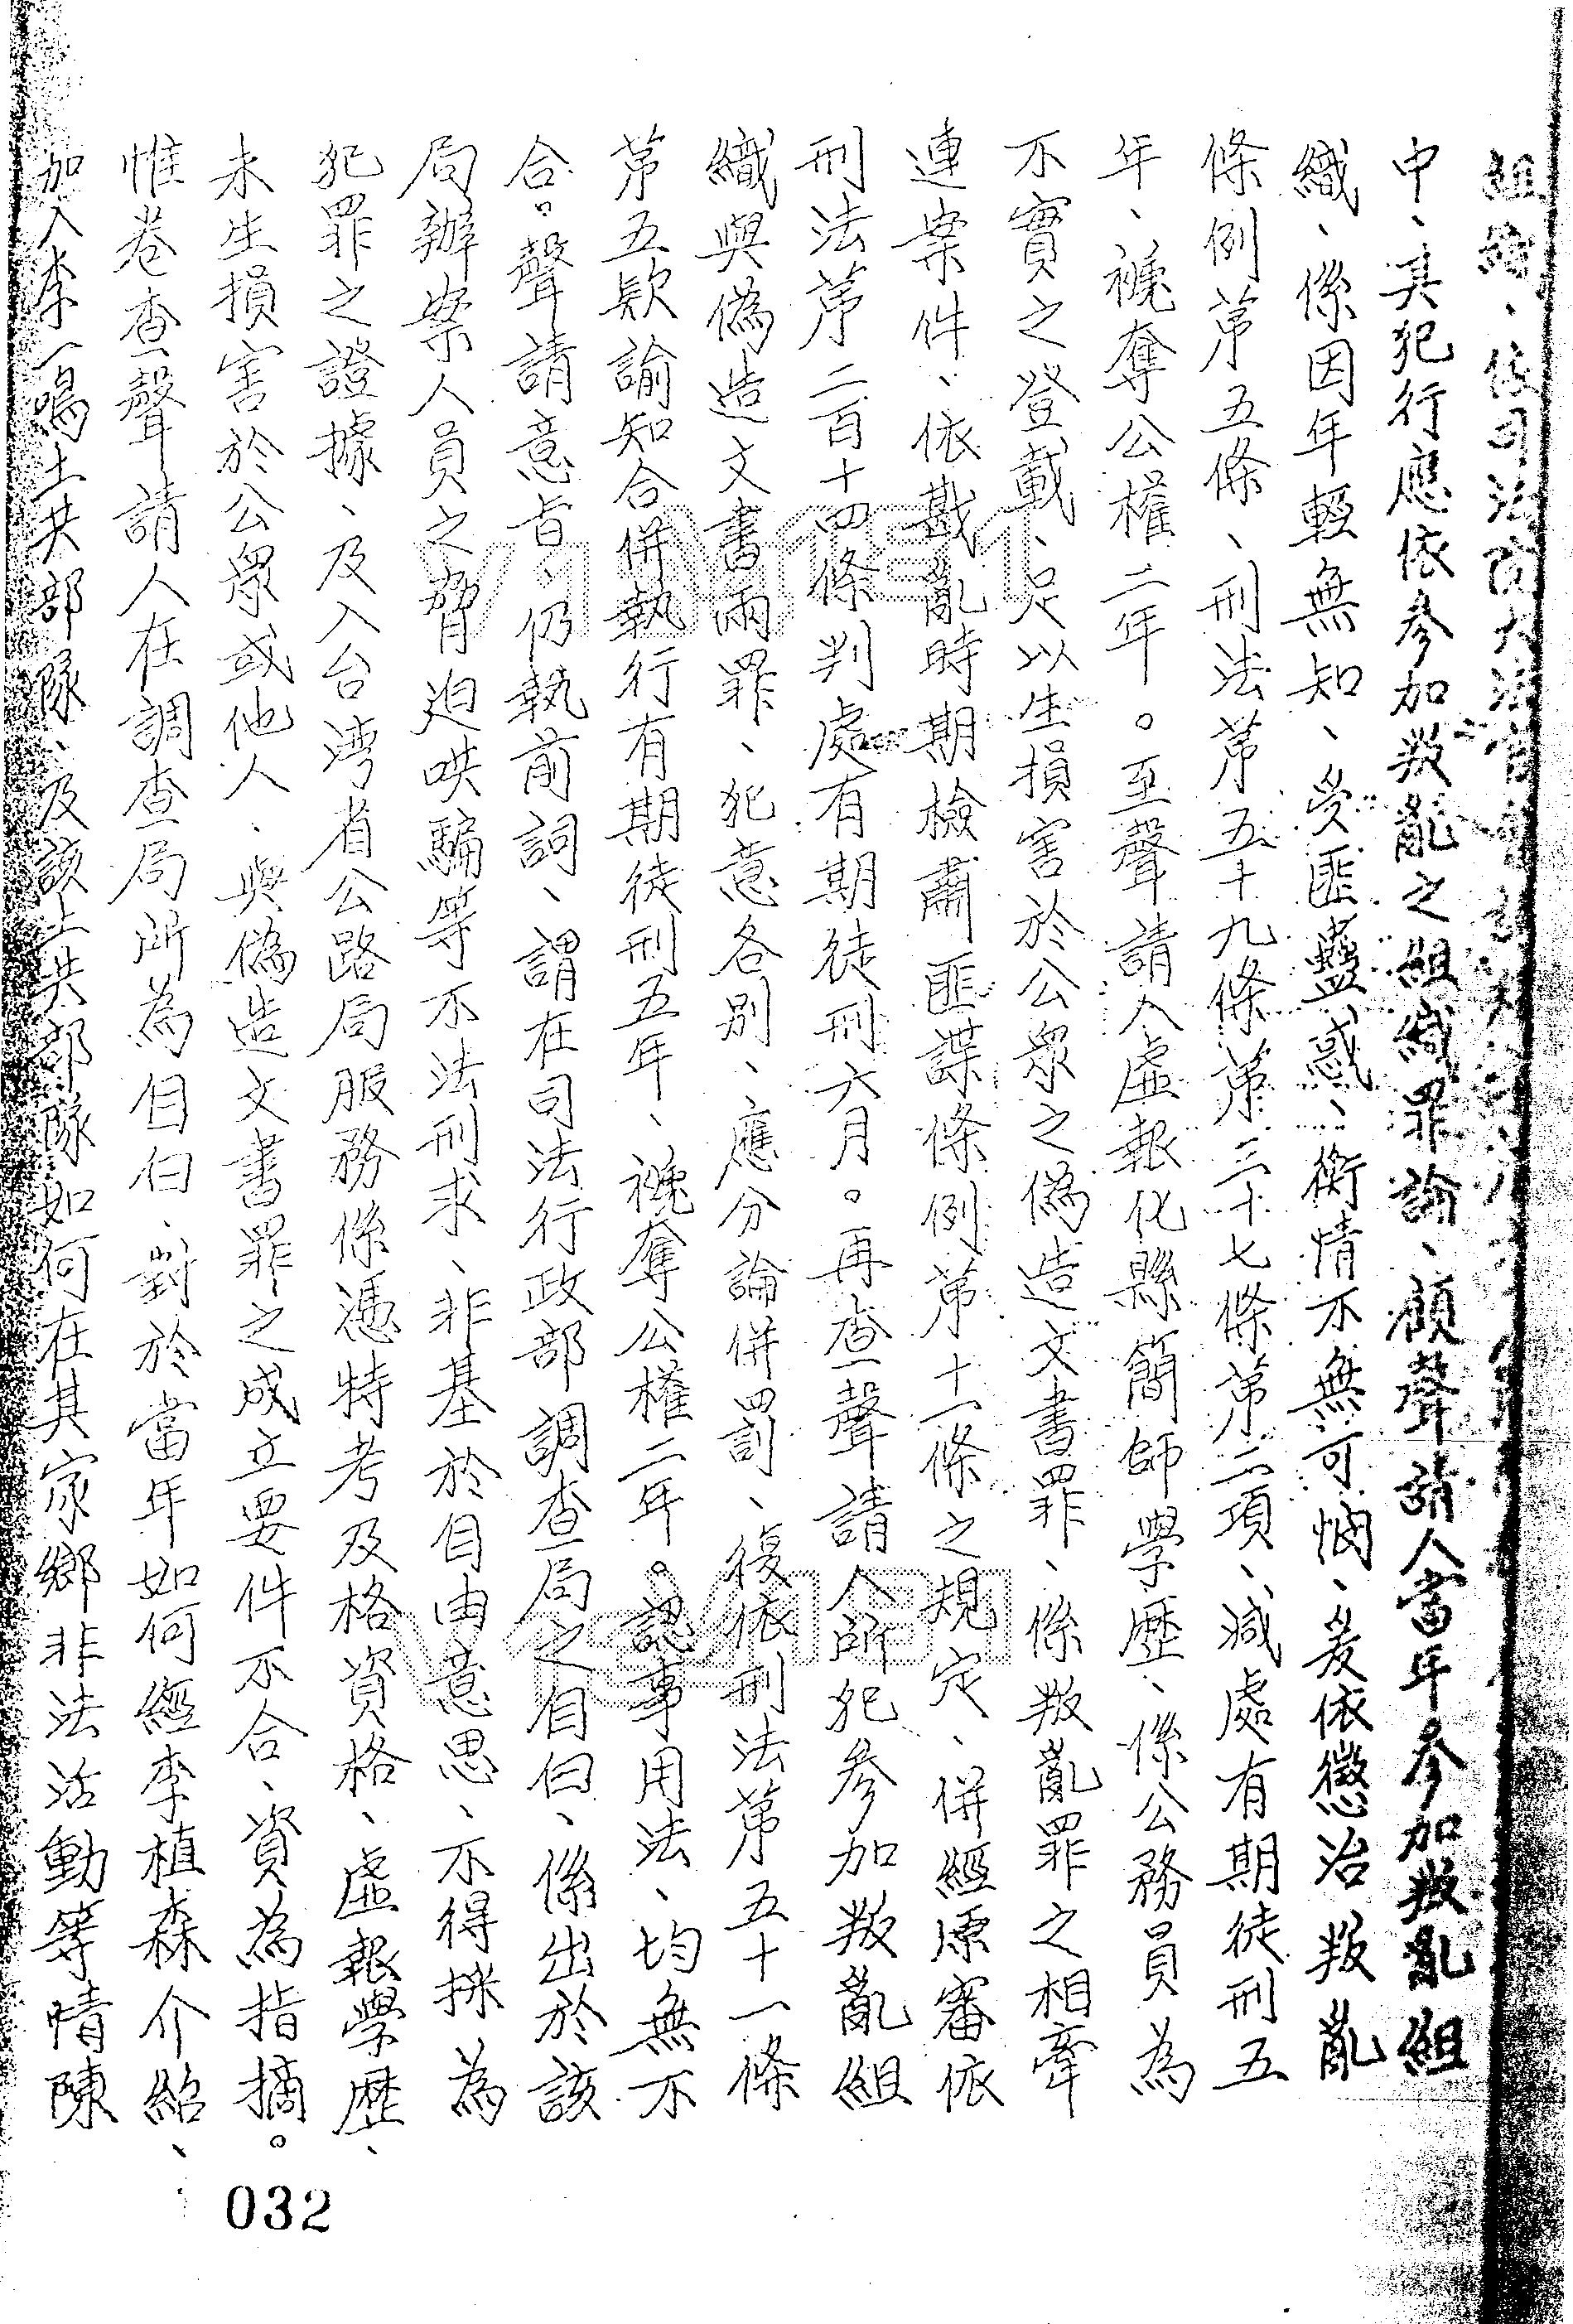 組織、依司法院大法官會議
中、其犯行應依參加叛亂之組織罪論、顧聲請人當年參加叛亂組
織、係因年輕無知、受匪蠱惑、衡情不無可憫、爰依懲治叛亂
條例第五條、刑法第五十九條第三十七條第二項、減處有期徒刑五
年、褫奪公權二年。至聲請人虛報化縣簡師學歷、係公務員為
不實之登載、足以生損害於公眾之偽造文書罪、係叛亂罪之相牽
連案件、依戡亂時期檢肅匪諜條例第十一條之規定、併經原審依
刑法第二百十四條判處有期徒刑六月。再查聲請人所犯參加叛亂組
織與偽造文書兩罪、犯意各別、應分論併罰、復依刑法第五十一條
第五款諭知合併執行有期徒刑五年、褫奪公權二年。認事用法、均無不
合。聲請意旨、仍執前詞、謂在司法行政部調查局之自白、係出於該
局辦案人員之脅迫哄騙等不法刑求、非基於自由意思、不得採為
犯罪之證據、及入台灣省公路局服務係憑特考及格資格、虛報學歷、
未生損害於公眾或他人、與偽造文書罪之成立要件不合、資為指摘。
惟卷查聲請人在調查局所為自白、對於當年如何經李植森介紹、
加入李一鳴土共部隊、及該土共部隊如何在其家鄉非法活動等情陳
032